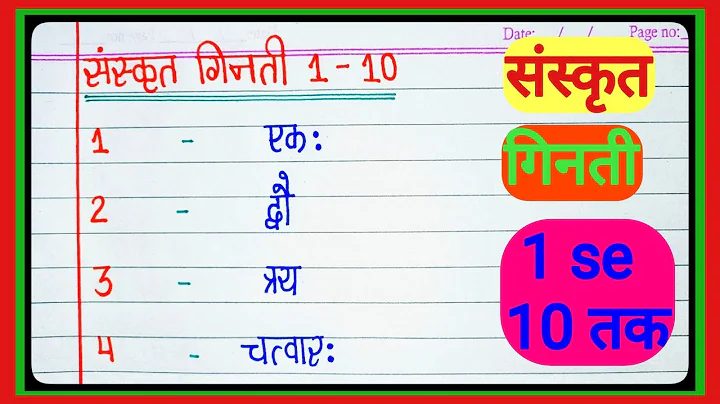 Date: / / Page no:
संस्कृत गिनती 1 - 10
1 - एक:
2 - द्वौ
3 - त्रय
4 - चत्वार:
संस्कृत
गिनती
1 se
10 तक